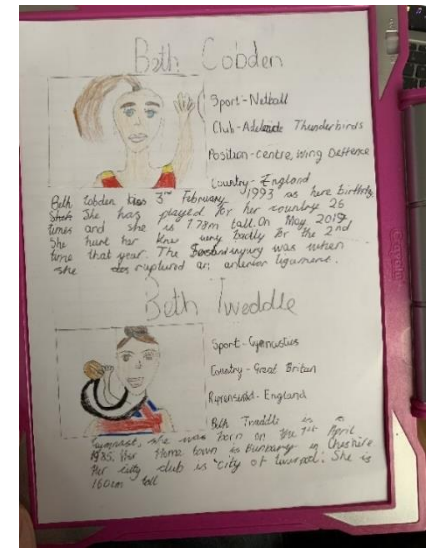 Beth Cobden
Sport-Netball
Club-Adelaide Thunderbirds
Position-centre, wing Deffence
Country-England
Beth Cobden has 3rd February 1993 as here birthday.
She has played for her country 26
times and she is 1.78m tall. On May 2019
She hurt her knee very badly for the 2nd
time that year. The Second injury was when
she ruptured an anterior ligament.
Beth Tweddle
Sport-Gymnastics
Country-Great Britan
England
Beth Tweddle is a
gymnast, she was born on the 1st April
1985. Her Home town is Bunbury in Cheshire
Her club is City of Liverpool. She is
160cm tall